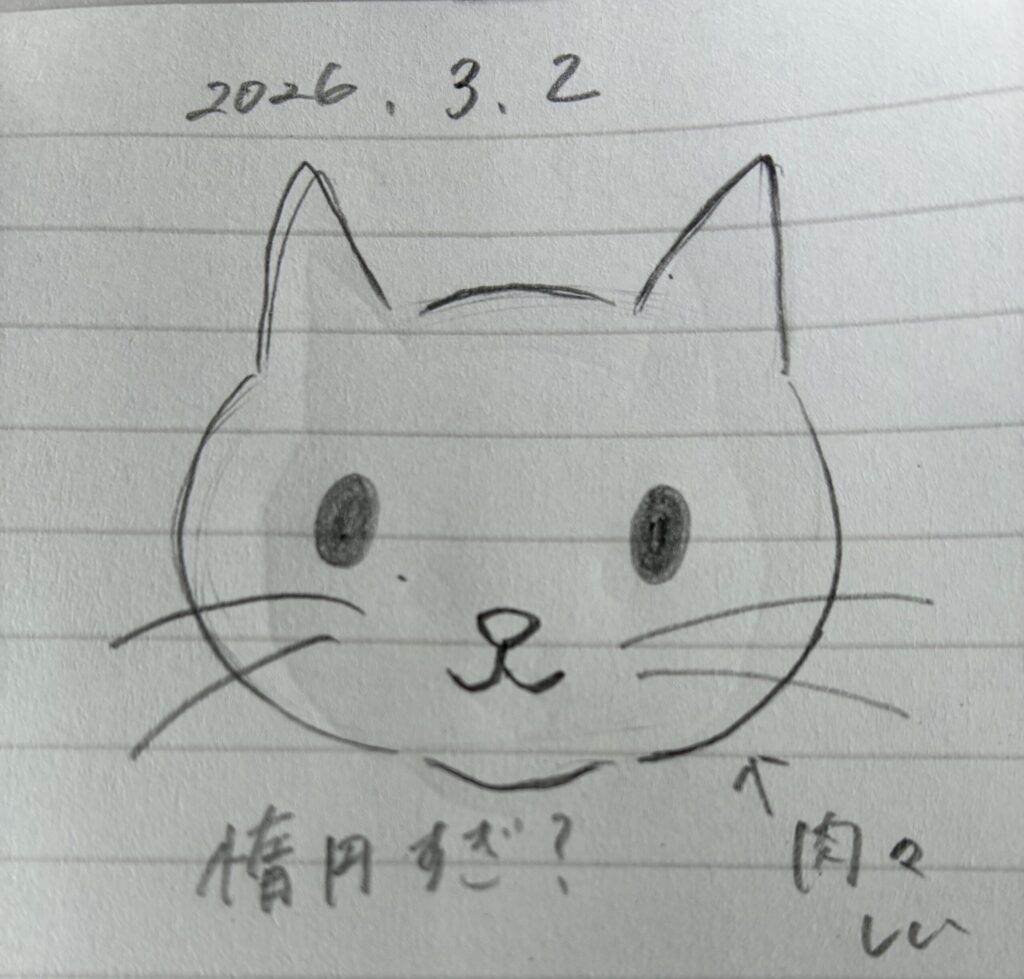 2026.3.2
楕円すぎ?
↑
肉々
しい